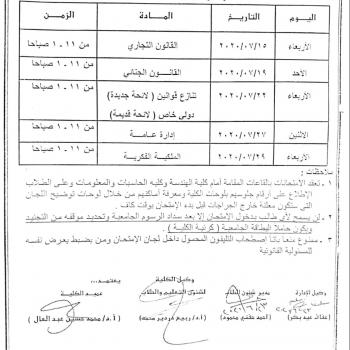 اليوم التاريخ المادة الزمن
الأربعاء ٢٠٢٠/٠٧/١٥ القانون التجاري من ١١ - ١ صباحا
الاحد ٢٠٢٠/٠٧/١٩ القانون الجنائي من ١١ - ١ صباحا
الأربعاء ٢٠٢٠/٠٧/٢٢ تنازع قوانين ( لائحة جديدة) من ١١ - ١ صباحا
دولى خاص ( لائحة قديمة)
الاثنين ٢٠٢٠/٠٧/٢٧ إدارة عامة من ١١ - ١ صباحا
الأربعاء ٢٠٢٠/٠٧/٢٩ الملكية الفكرية من ١١ - ١ صباحا
ملاحظات :
١. تعقد الامتحانات بالقاعات المقامة أمام كلية الهندسة وكلية الحاسبات والمعلومات وعلى الطلاب
الإطلاع على أرقام جلوسهم بلوحات الكلية ومعرفة أماكنهم من خلال لوحات توضيح اللجان
التى ستكون معلنة خارج الجراجات قبل بدء الإمتحان بوقت كاف.
٢. لن يسمح لأى طالب بدخول الإمتحان إلا بعد سداد الرسوم الجامعية وتحديد موقفه من التجنيد
ويكون حاملا البطاقة الجامعية ( كارنية الكلية ).
٣. ممنوع منعا باتا اصطحاب التليفون المحمول داخل لجان الإمتحان ومن يضبط يعرض نفسه
للمسئولية القانونية
يعتمد،،،
مدير الإدارة مدير شئون الطلاب وكيل الكلية عميد الكلية
لشئون التعليم والطلاب
( أحمد محمود ) ( أ.د/ ربيع محمد ) ( أ.د/ محمد حسين عبد العال )